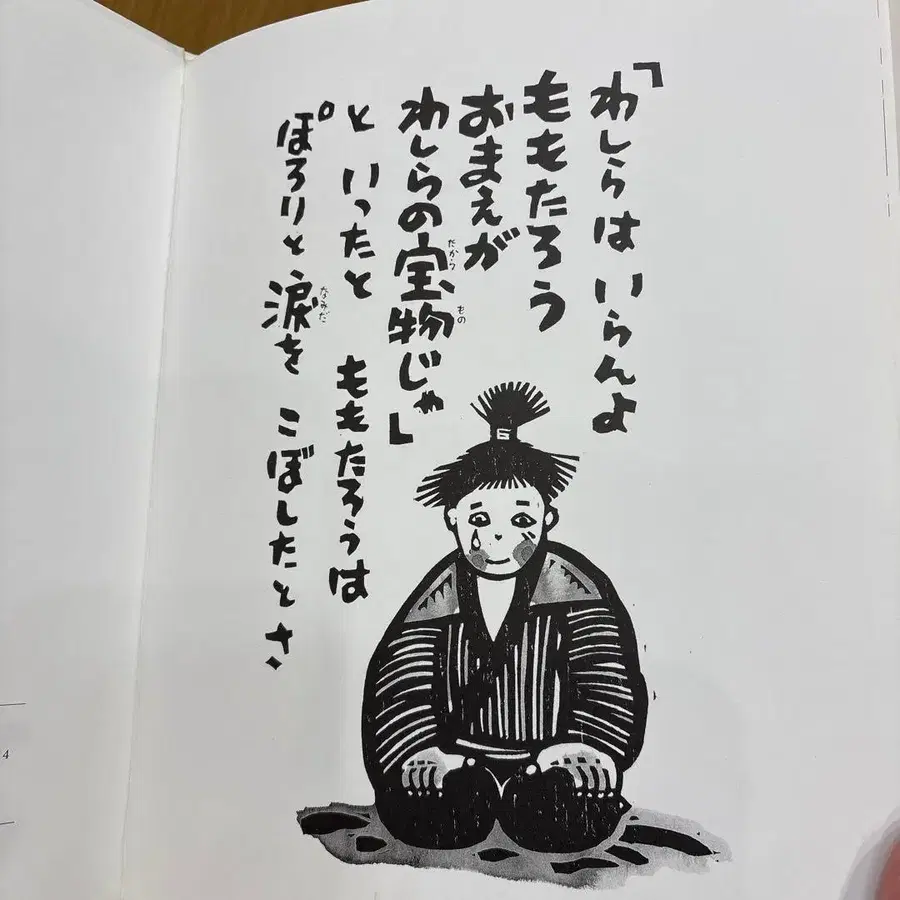 「わしらは いらんよ
ももたろう
おまえが
わしらの宝物じゃ」
だから
もの
と いったと ももたろうは
ぽろりと 涙を こぼしたとさ
なみだ
4